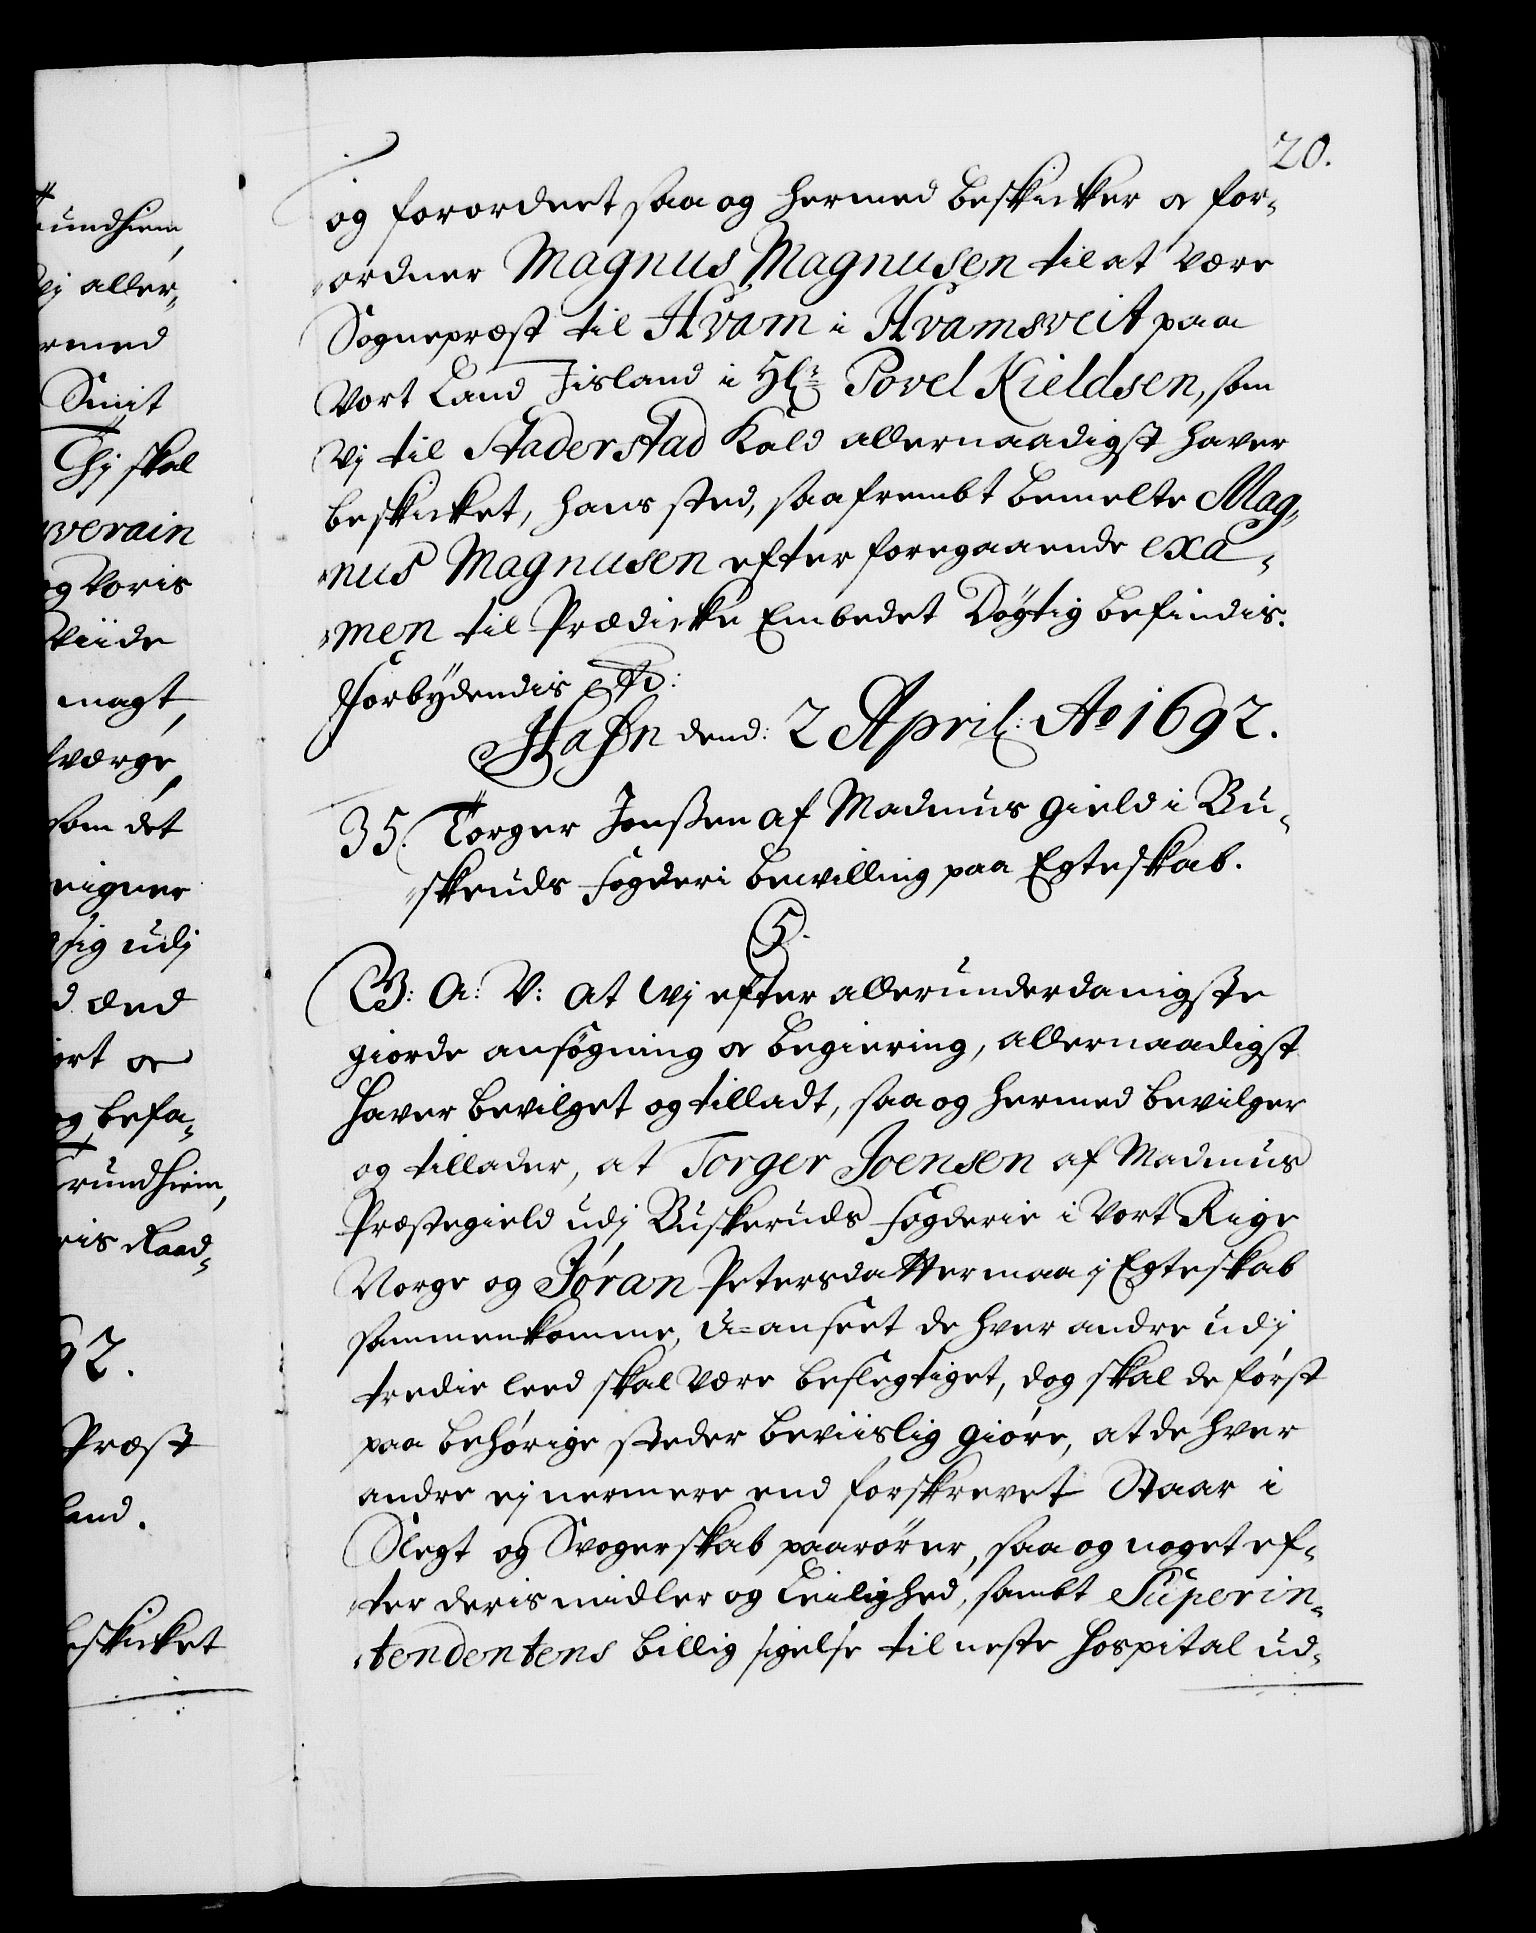 20.
og forordnet saa og hermed beskicker og for-
ordner Magnus Magnusen til at være
Sognepræst til Hvam i Hvamsveit paa
Vort Land Jisland i Hr: Povel Kieldsen, som
Vj til Staderstad Kald allernaadigst haver
beskicket, hans sted, saafrembt bemelte Mag-
nus Magnusen efter foregaaende exa-
men til Prædicke Embedet Døgtig befindis.
Forbydendis &c:
Hafn dend: 2 April: Ao 1692.
35. Torger Jonßen af Modums gield i Bu-
skeruds Fogderi bewilling paa Egteskab.
C5.
G: A: V: at Wj efter allerunderdanigste
giorde ansøgning og begiering, allernaadigst
haver bevilget og tilladt, saa og hermed bevilger
og tillader, at Torger Joensen af Modums
Præstegield udj Buskeruds Fogderie i Vort Rige
Norge og Jóran Petersdatter maa j Egteskab
sammenkomme, U-anseet de hver andre udj
tredie leed skal være beslegtiget, dog skal de først
paa behørige steder beviislig giøre, at de hver
andre ej nermere end forskrevet Staar i
Slegt og Svogerskab paarører, saa og noget ef-
ter deris midler og Leilighed, sambt Superin-
tendentens billig sigelse til neste Hospital ud-
undhiem,
Vj aller-
rmed
Smit
Thj skal
verain
og Voris
Viide
magt,
værge
som det
eigner
sig udj
d ænd
iert og
og befa-
rundhiem,
ris Raad-
92.
Præst
land.
eskicket